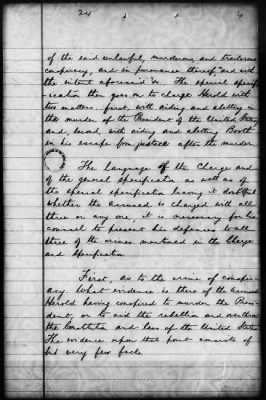 24
4
of the said unlawful, murderous and traitorous
conspiracy, and in pursuance thereof, and with
the intent aforesaid &c. The special specifi-
-cation then goes on to charge Herold with
two matters. first, with aiding and abetting in
the murder of the President of the United States
and, second, with aiding and abetting Booth
in his escape from justice after the murder.
The language of the Charge and
of the general specification as well as of
the special specification leaving it doubtful
whether the accused is charged with all
three or any one, it is necessary for his
counsel to present his defences to all
three of the crimes mentioned in the Charge
and Specification
First, as to the crime of conspir-
acy. What evidence is there of the accused
Herold having conspired to murder the Presi-
dent, or to aid the rebellion and overthrow
the Constitution and laws of the United States
The evidence upon that point consists of
but very few facts.